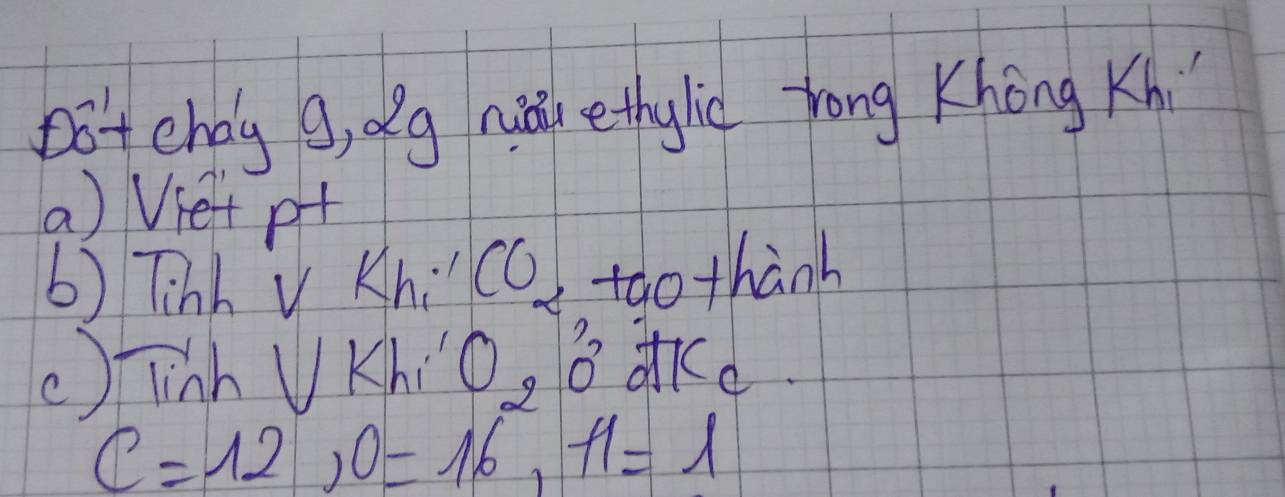 Đốt cháy 9,2g rượu ethylic trong Không Khí
a) Viết pt
b) Tính V Khí CO2 tạo thành
c) Tính V Khí O2 ở đKc.
C = 12, O = 16, H = 1